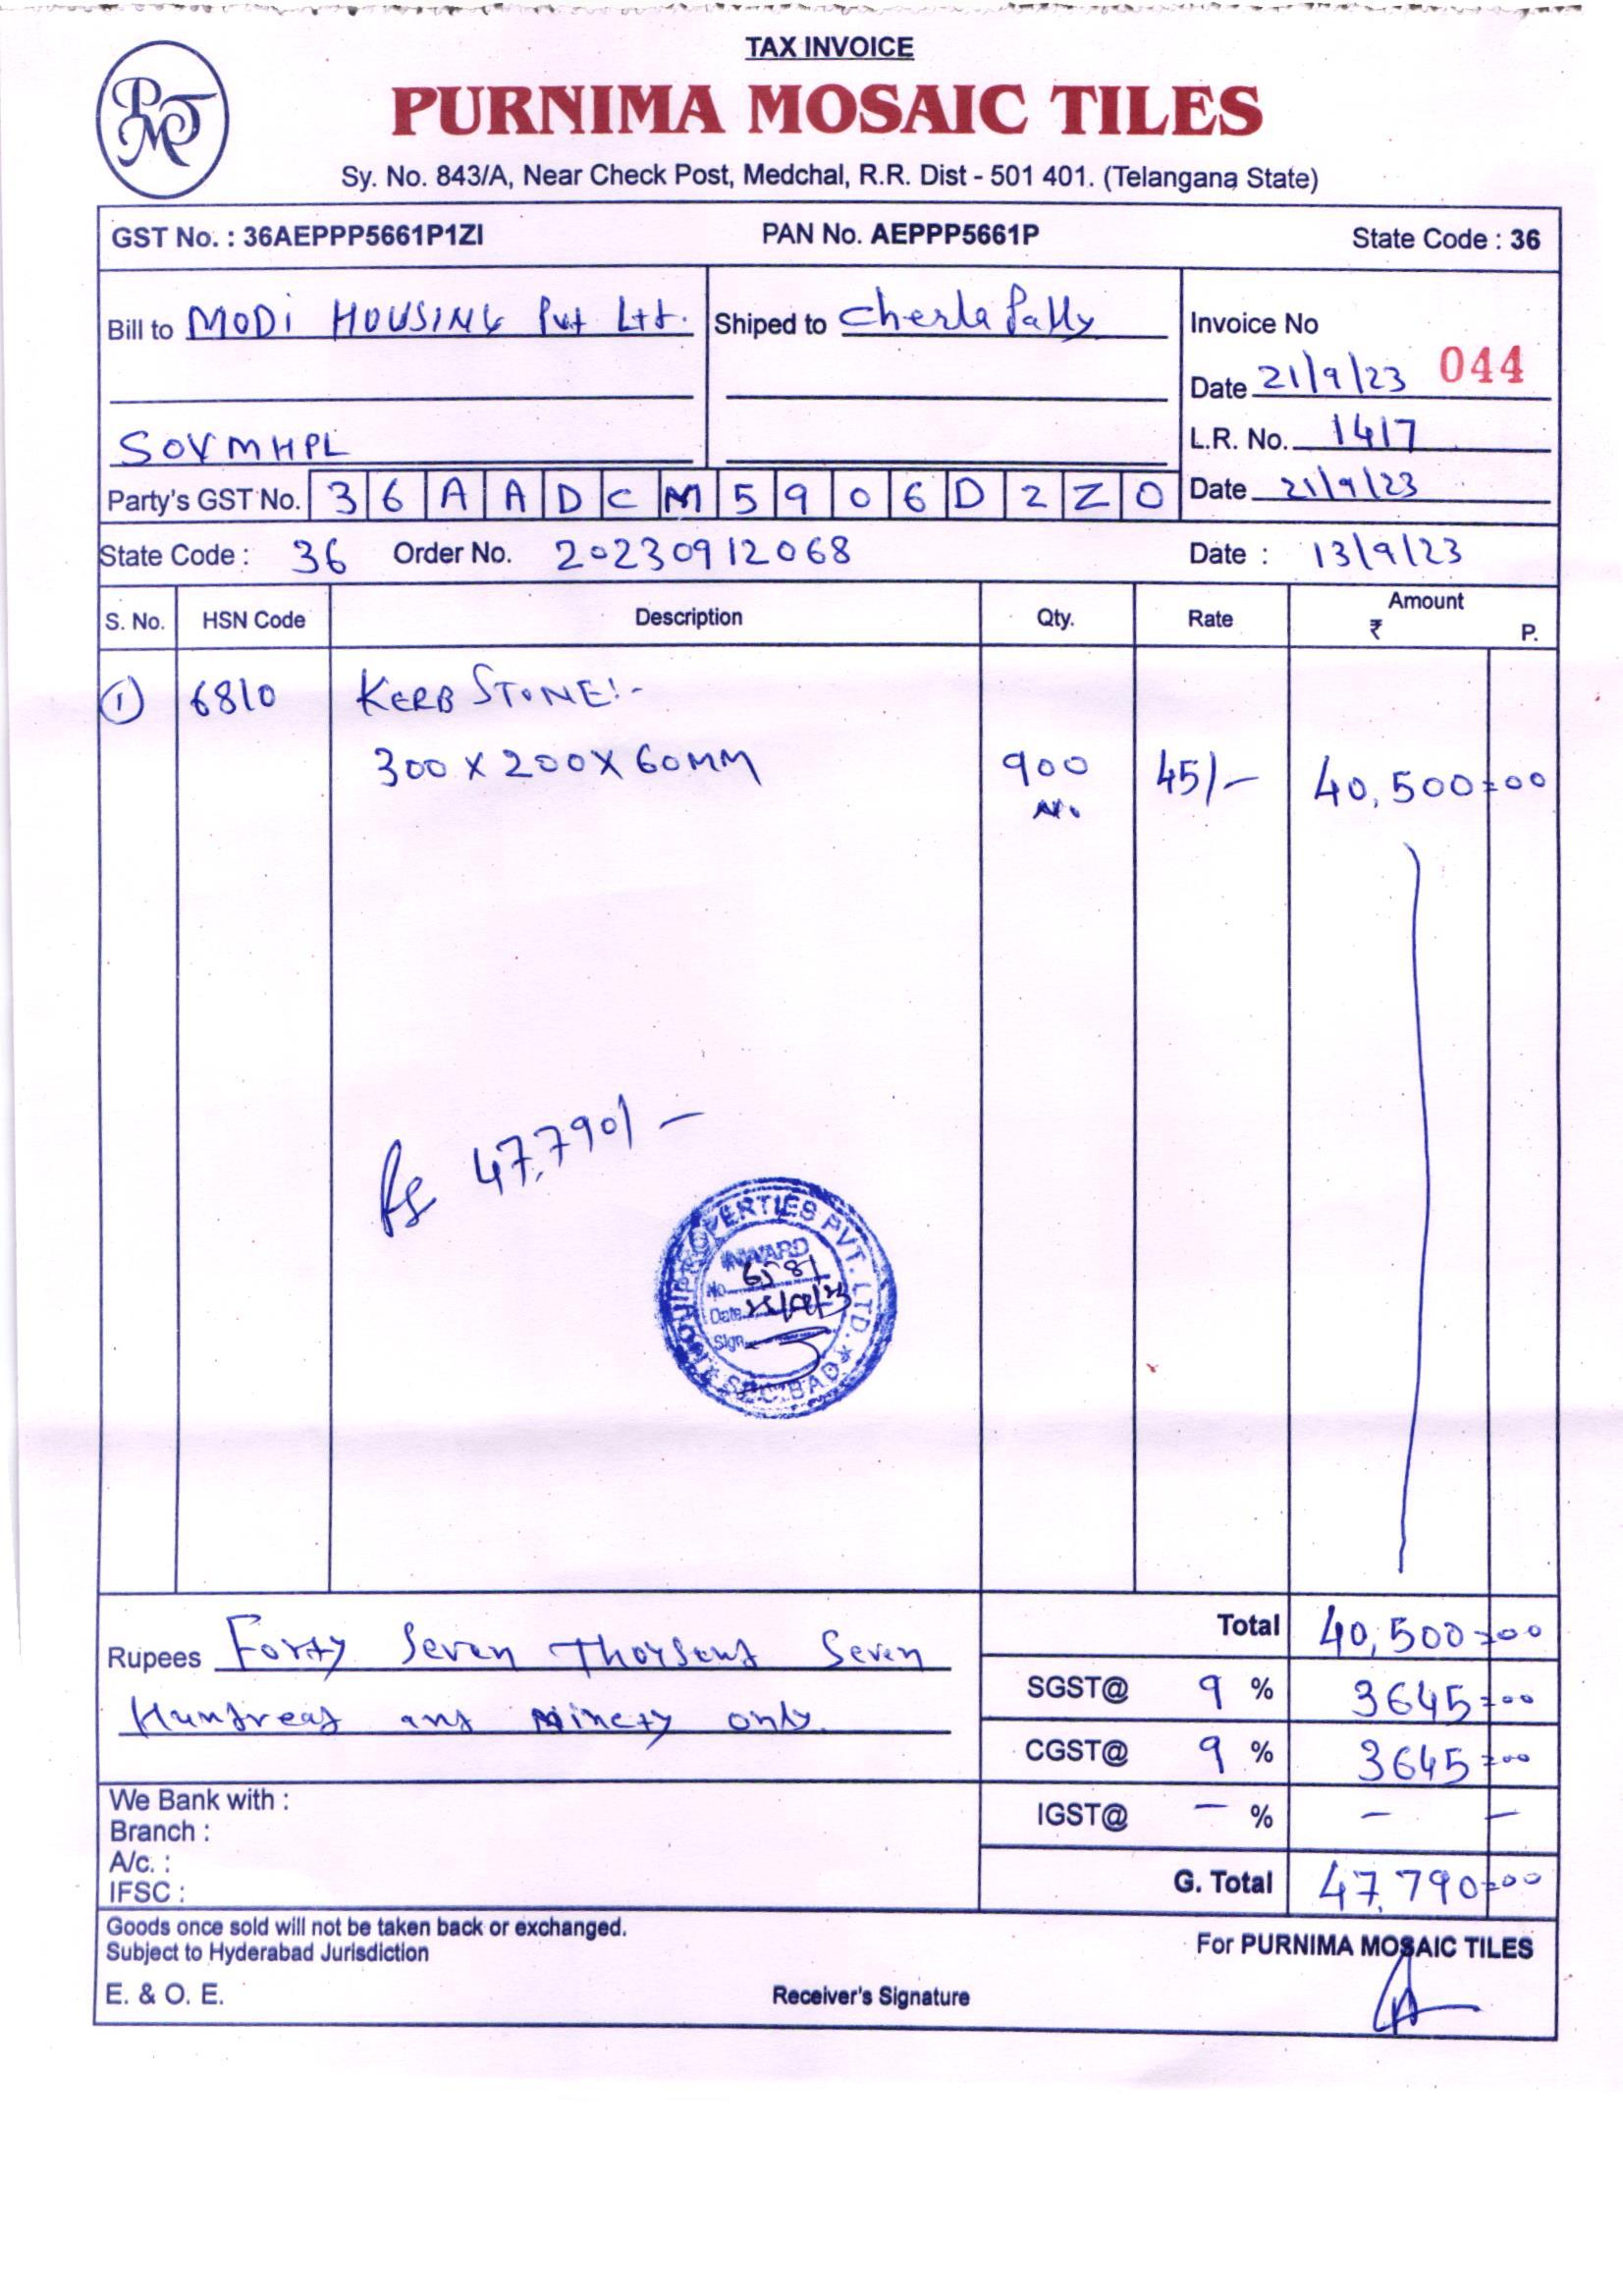 TAX INVOICE
PMT
PURNIMA MOSAIC TILES
Sy. No. 843/A, Near Check Post, Medchal, R.R. Dist - 501 401. (Telangana State)
GST No. : 36AEPPP5661P1ZI PAN No. AEPPP5661P State Code : 36
Bill to MODi HOUSING Pvt Ltd. Shiped to Cherla Pally Invoice No
044
Date 21/9/23
SOVMHPL L.R. No. 1417
Party's GST No. 36AADCM5906D2ZO Date 21/9/23
State Code : 36 Order No. 20230912068 Date : 13/9/23
S. No. HSN Code Description Qty. Rate Amount
₹ P.
1 6810 KERB STONE:-
300 X 200 X 60MM 900 45/- 40,500=00
No.
Rs 47,790/-
PROPERTIES PVT. LTD.
INWARD
No.
Date
Sign
Total 40,500=00
Rupees Forty Seven Thousand Seven
SGST@ 9 % 3645=00
Hundread and Ninety only.
CGST@ 9 % 3645=00
We Bank with :
IGST@ - % - -
Branch :
A/c. :
G. Total 47,790=00
IFSC :
Goods once sold will not be taken back or exchanged.
Subject to Hyderabad Jurisdiction For PURNIMA MOSAIC TILES
E. & O. E. Receiver's Signature